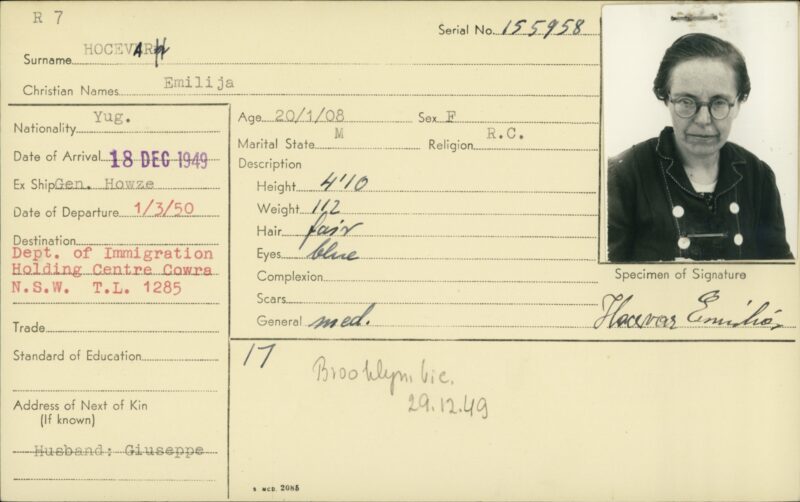 R 7
Serial No. 155958
Surname HOCEVAR
Christian Names Emilija
Nationality Yug.
Date of Arrival 18 DEC 1949
Ex Ship Gen. Howze
Date of Departure 1/3/50
Destination
Dept. of Immigration
Holding Centre Cowra
N.S.W. T.L. 1285
Trade
Standard of Education
Address of Next of Kin
(If known)
Husband: Giuseppe
Age 20/1/08 Sex F
Marital State M Religion R.C.
Description
Height 4'10
Weight 112
Hair fair
Eyes blue
Complexion
Scars
General med.
Specimen of Signature
Hocevar Emilija
17
Brooklyn Vic.
29.12.49
MCD. 2085